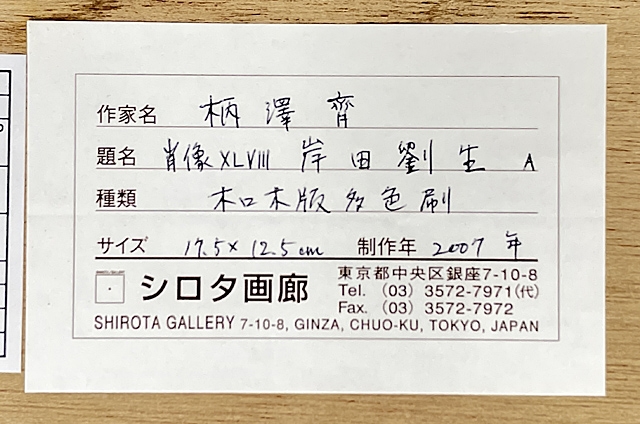 作家名 柄澤齊
題名 肖像XLVIII 岸田劉生 A
種類 木口木版多色刷
サイズ 17.5×12.5cm 制作年 2007年
シロタ画廊
東京都中央区銀座7-10-8
Tel. (03) 3572-7971(代)
Fax. (03) 3572-7972
SHIROTA GALLERY 7-10-8, GINZA, CHUO-KU, TOKYO, JAPAN